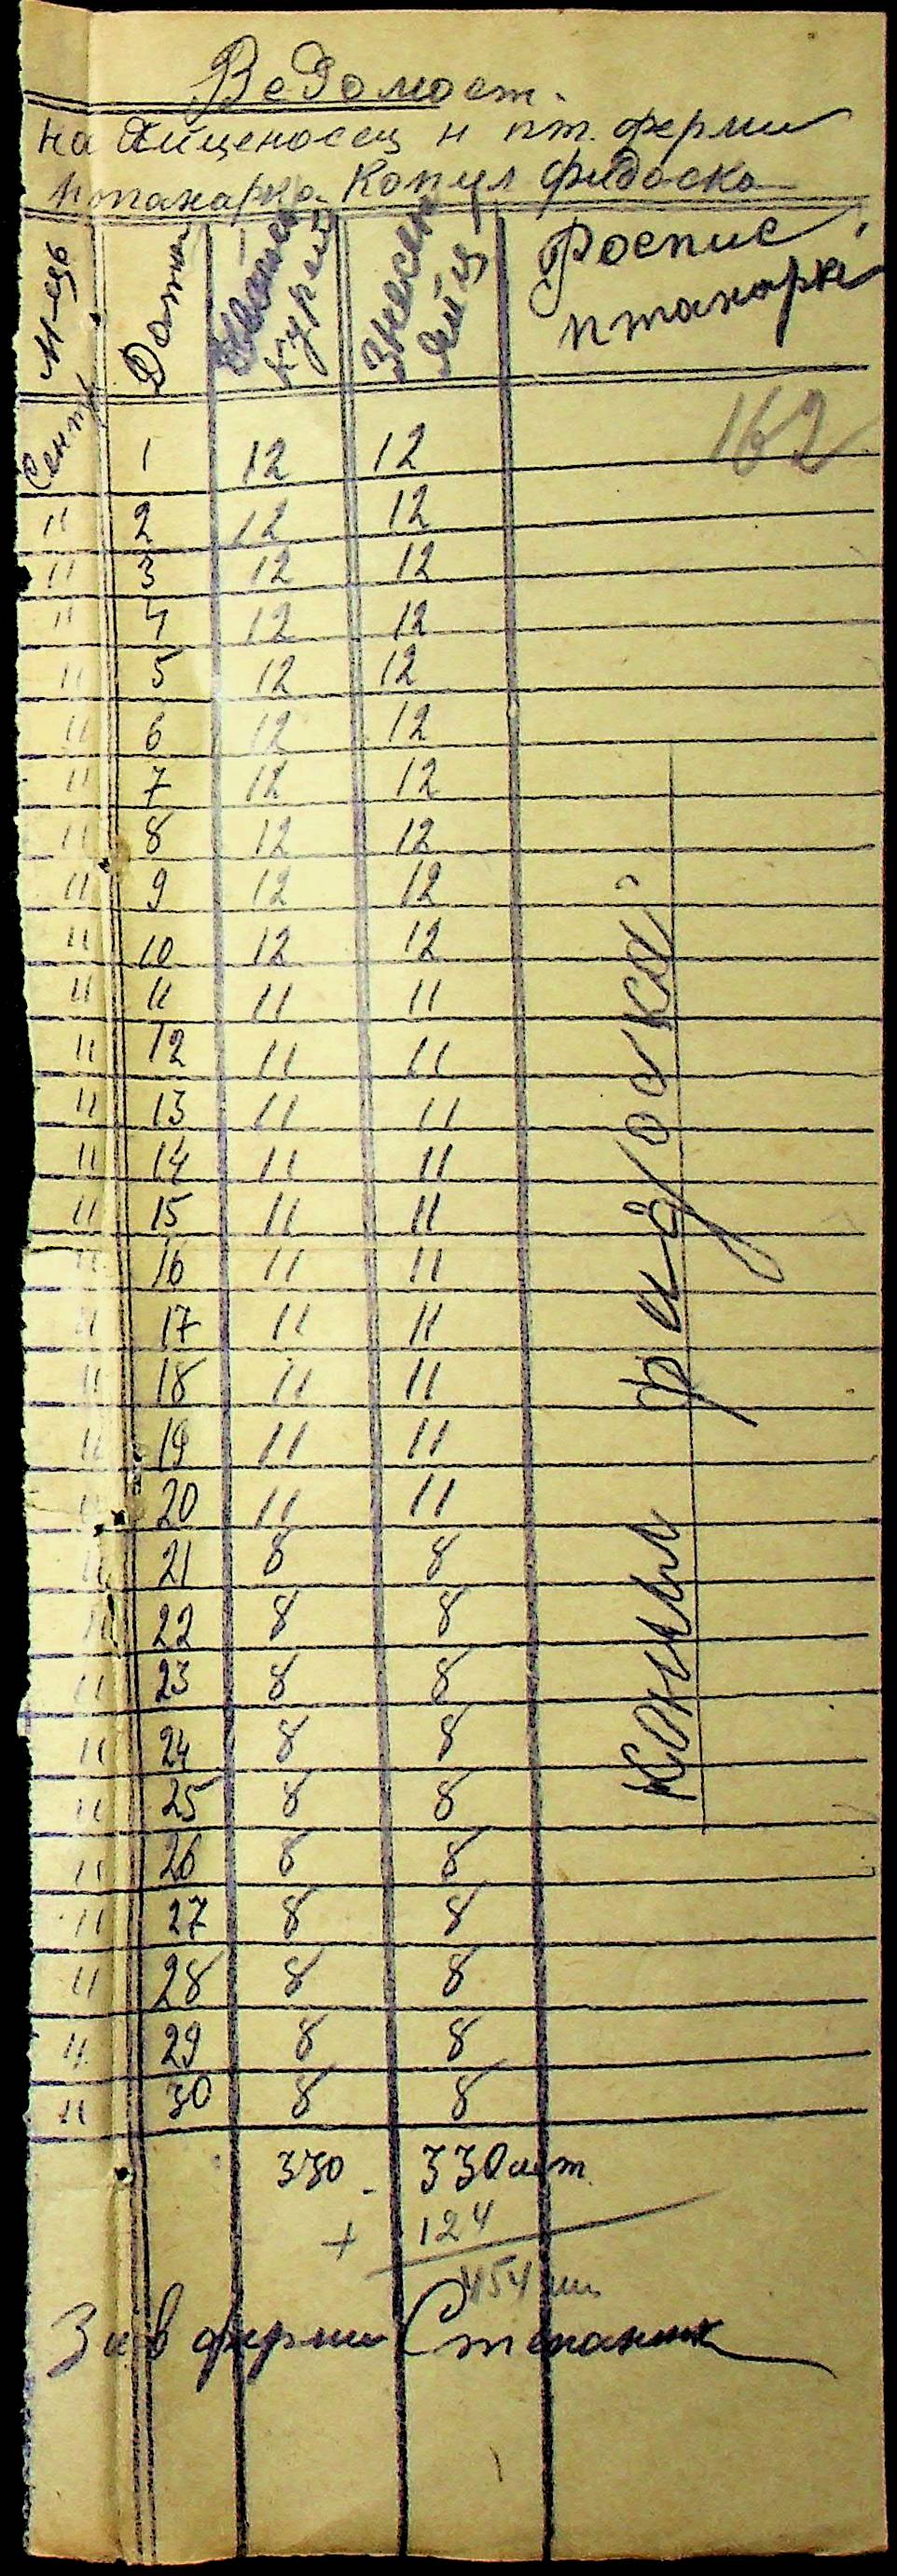 Ведомост.
на Яйценосец н пт. ферми
птанарка Копил фидоска
М-ць Дата курей Знесен яйц Роспис птанарки
162
Сент 1 12 12
" 2 12 12
" 3 12 12
" 4 12 12
" 5 12 12
" 6 12 12
" 7 12 12
" 8 12 12
" 9 12 12
" 10 12 12
" 11 11 11
" 12 11 11
" 13 11 11
" 14 11 11
" 15 11 11
" 16 11 11
" 17 11 11
" 18 11 11
" 19 11 11
" 20 11 11
" 21 8 8
" 22 8 8
" 23 8 8
" 24 8 8
" 25 8 8
" 26 8 8
" 27 8 8
" 28 8 8
" 29 8 8
" 30 8 8
Копил фидоска
330 - 330 шт.
+ 124
454 шт.
Зав ферми Степанюк